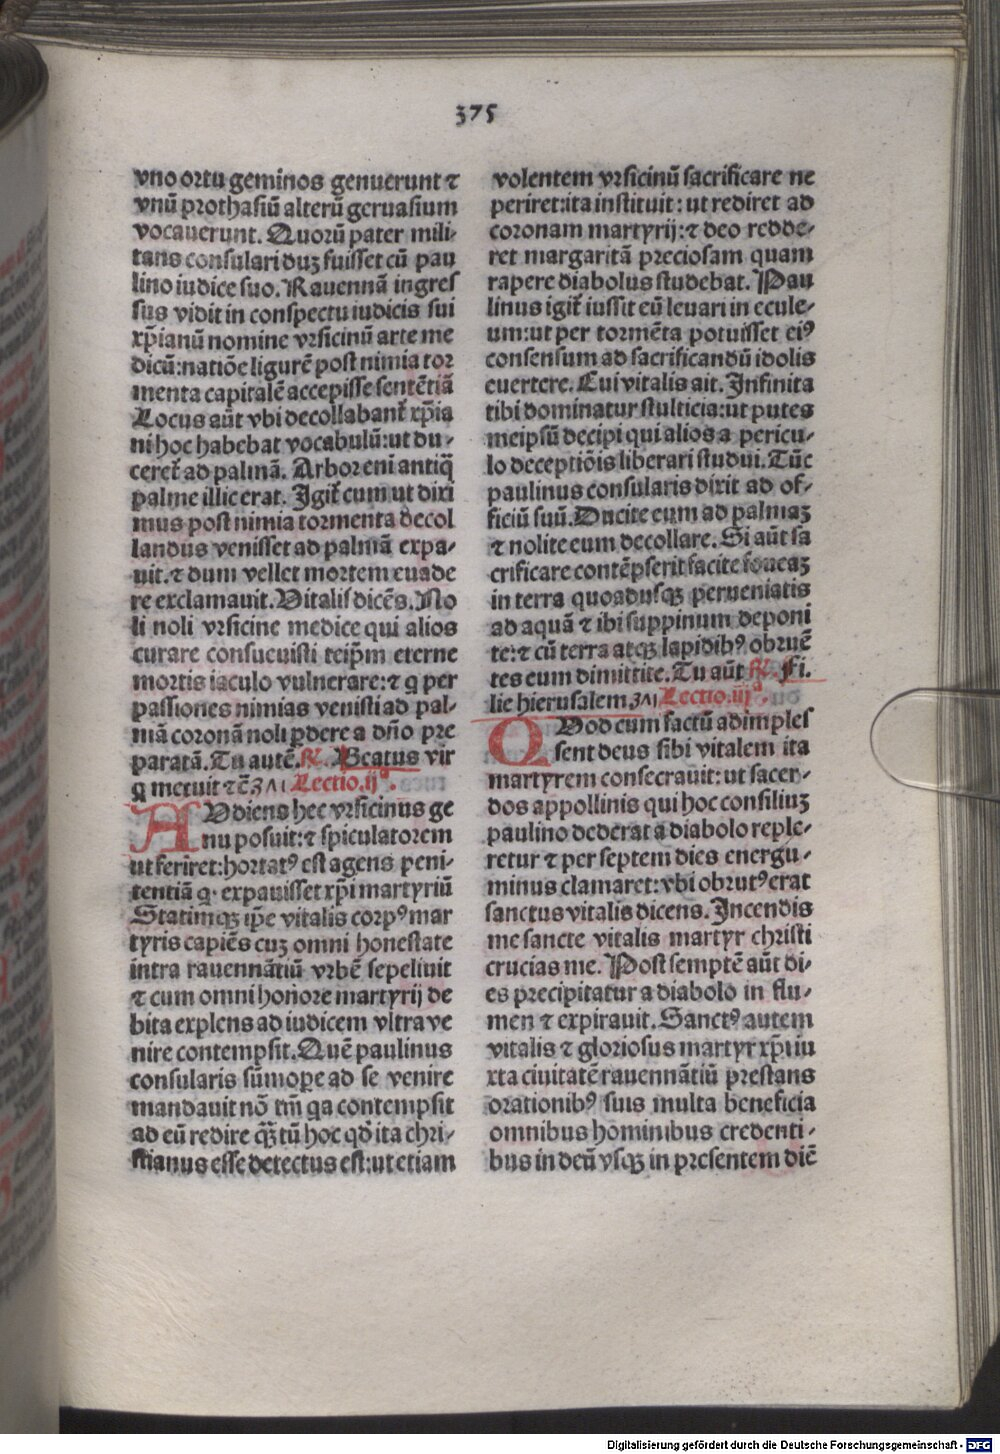 375
vno ortu geminos genuerunt ⁊
vnū prothasiū alterū geruasium
vocauerunt. Quorū pater mili-
tans consulari duꝫ fuisset cū pau
lino iudice suo. Rauennā ingres
sus vidit in conspectu iudicis sui
xp̄ianū nomine vrsicinū arte me
dicū: natiōe ligurē post nimia tor
menta capitalē accepisse sentētiā
Locus aūt vbi decollabant᷑ xp̄ia
ni hoc habebat vocabulū: ut du-
ceret᷑ ad palmā. Arbor eni antiq̄
palme illic erat. Igit᷑ cum ut dixi
mus post nimia tormenta decol
landus venisset ad palmā expa-
uit. ⁊ dum vellet mortem euade
re exclamauit. Vitalis dicēs. No
li noli vrsicine medice qui alios
curare consueuisti teip̄m eterne
mortis iaculo vulnerare: ⁊ q per
passiones nimias venisti ad pal-
mā coronā noli ꝑdere a dn̄o pre
paratā. Tu autē. ℟. Beatus vir
q metuit ⁊c̄ 3 A1 Lectio. ijª.
AUdiens hec vrsicinus ge
nu posuit: ⁊ spiculatorem
ut feriret: hortatꝰ est agens peni-
tentiā q. expauisset xp̄i martyriū
Statimqꝫ ip̄e vitalis corpꝰ mar
tyris capiēs cuꝫ omni honestate
intra rauennātiū vrbē sepeliuit
⁊ cum omni honore martyrij de
bita explens ad iudicem vltra ve
nire contempsit. Quē paulinus
consularis sūmoꝑe ad se venire
mandauit nō tm̄ qa contempsit
ad eū redire qꝫ̄ tū hoc qd̄ ita chri-
stianus esse detectus est: ut etiam
volentem vrsicinū sacrificare ne
periret: ita instituit: ut rediret ad
coronam martyrij: ⁊ deo redde-
ret margaritā preciosam quam
rapere diabolus studebat. Pau
linus igit᷑ iussit eū leuari in ecule-
um: ut per tormēta potuisset eiꝰ
consensum ad sacrificandū idolis
euertere. Cui vitalis ait. Infinita
tibi dominatur stulticia: ut putes
meipsū decipi qui alios a pericu-
lo deceptiōis liberari studui. Tūc
paulinus consularis dixit ad of-
ficiū suū. Ducite eum ad palmaꝫ
⁊ nolite eum decollare. Si aūt sa
crificare contēpserit facite foueaꝫ
in terra quoadusqꝫ perueniatis
ad aquā ⁊ ibi suppinum deponi
te: ⁊ cū terra atqꝫ lapidibꝰ obruē
tes eum dimittite. Tu aūt ℟. Fi.
lie hierusalem 3 A1 Lectio. iijª.
QVod cum factū adimples
sent deus sibi vitalem ita
martyrem consecrauit: ut sacer-
dos appollinis qui hoc consiliuꝫ
paulino dederat a diabolo reple-
retur ⁊ per septem dies energu-
minus clamaret: vbi obrutꝰ erat
sanctus vitalis dicens. Incendis
me sancte vitalis martyr christi
crucias me. Post septē aūt di-
es precipitatur a diabolo in flu-
men ⁊ expirauit. Sanctꝰ autem
vitalis ⁊ gloriosus martyr xp̄i iu
xta ciuitatē rauennātiū prestans
orationibꝰ suis multa beneficia
omnibus hominibus credenti-
bus in deū vsqꝫ in presentem diē
Digitalisierung gefördert durch die Deutsche Forschungsgemeinschaft - DFG